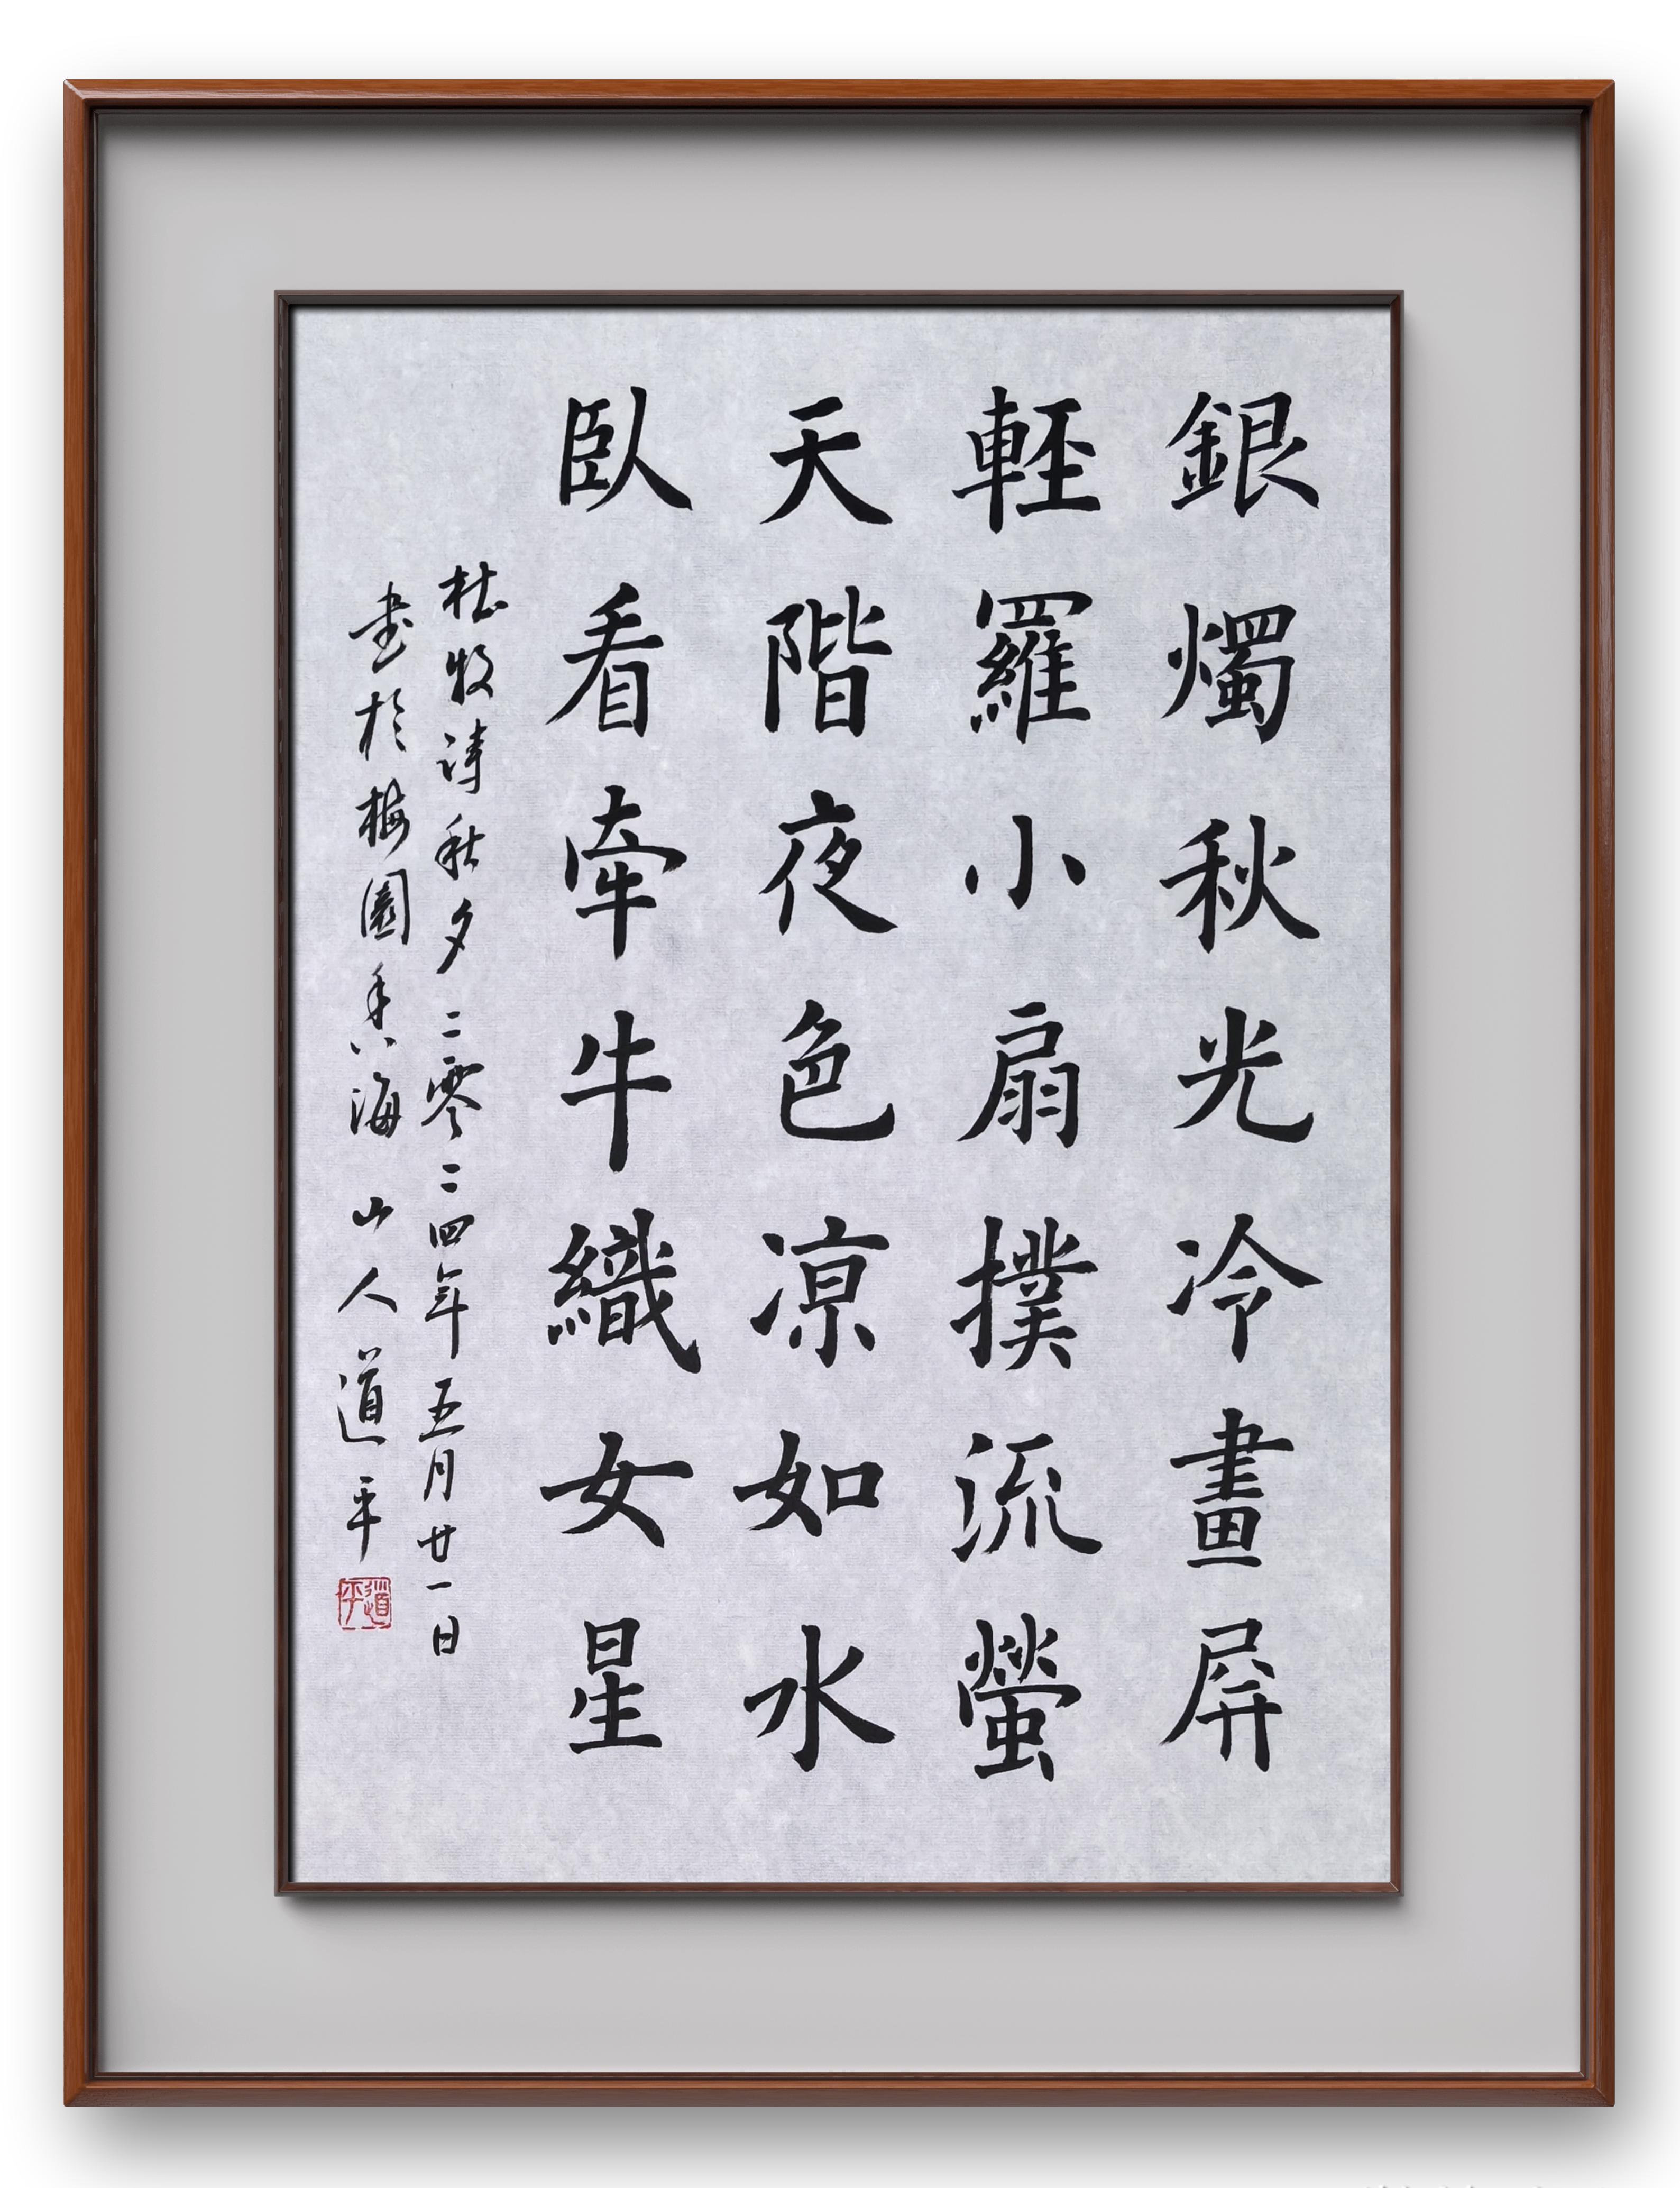 銀燭秋光冷畫屏
輕羅小扇撲流螢
天階夜色凉如水
臥看牽牛織女星
杜牧詩秋夕二零二四年五月廿一日
書於梅園香海山人道平
道平